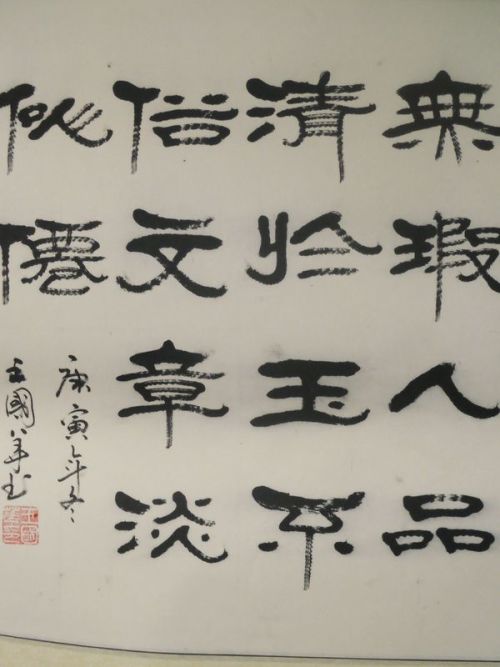 無瑕人品
清於玉不
俗文章淡
似僊
庚寅年冬
王國华书